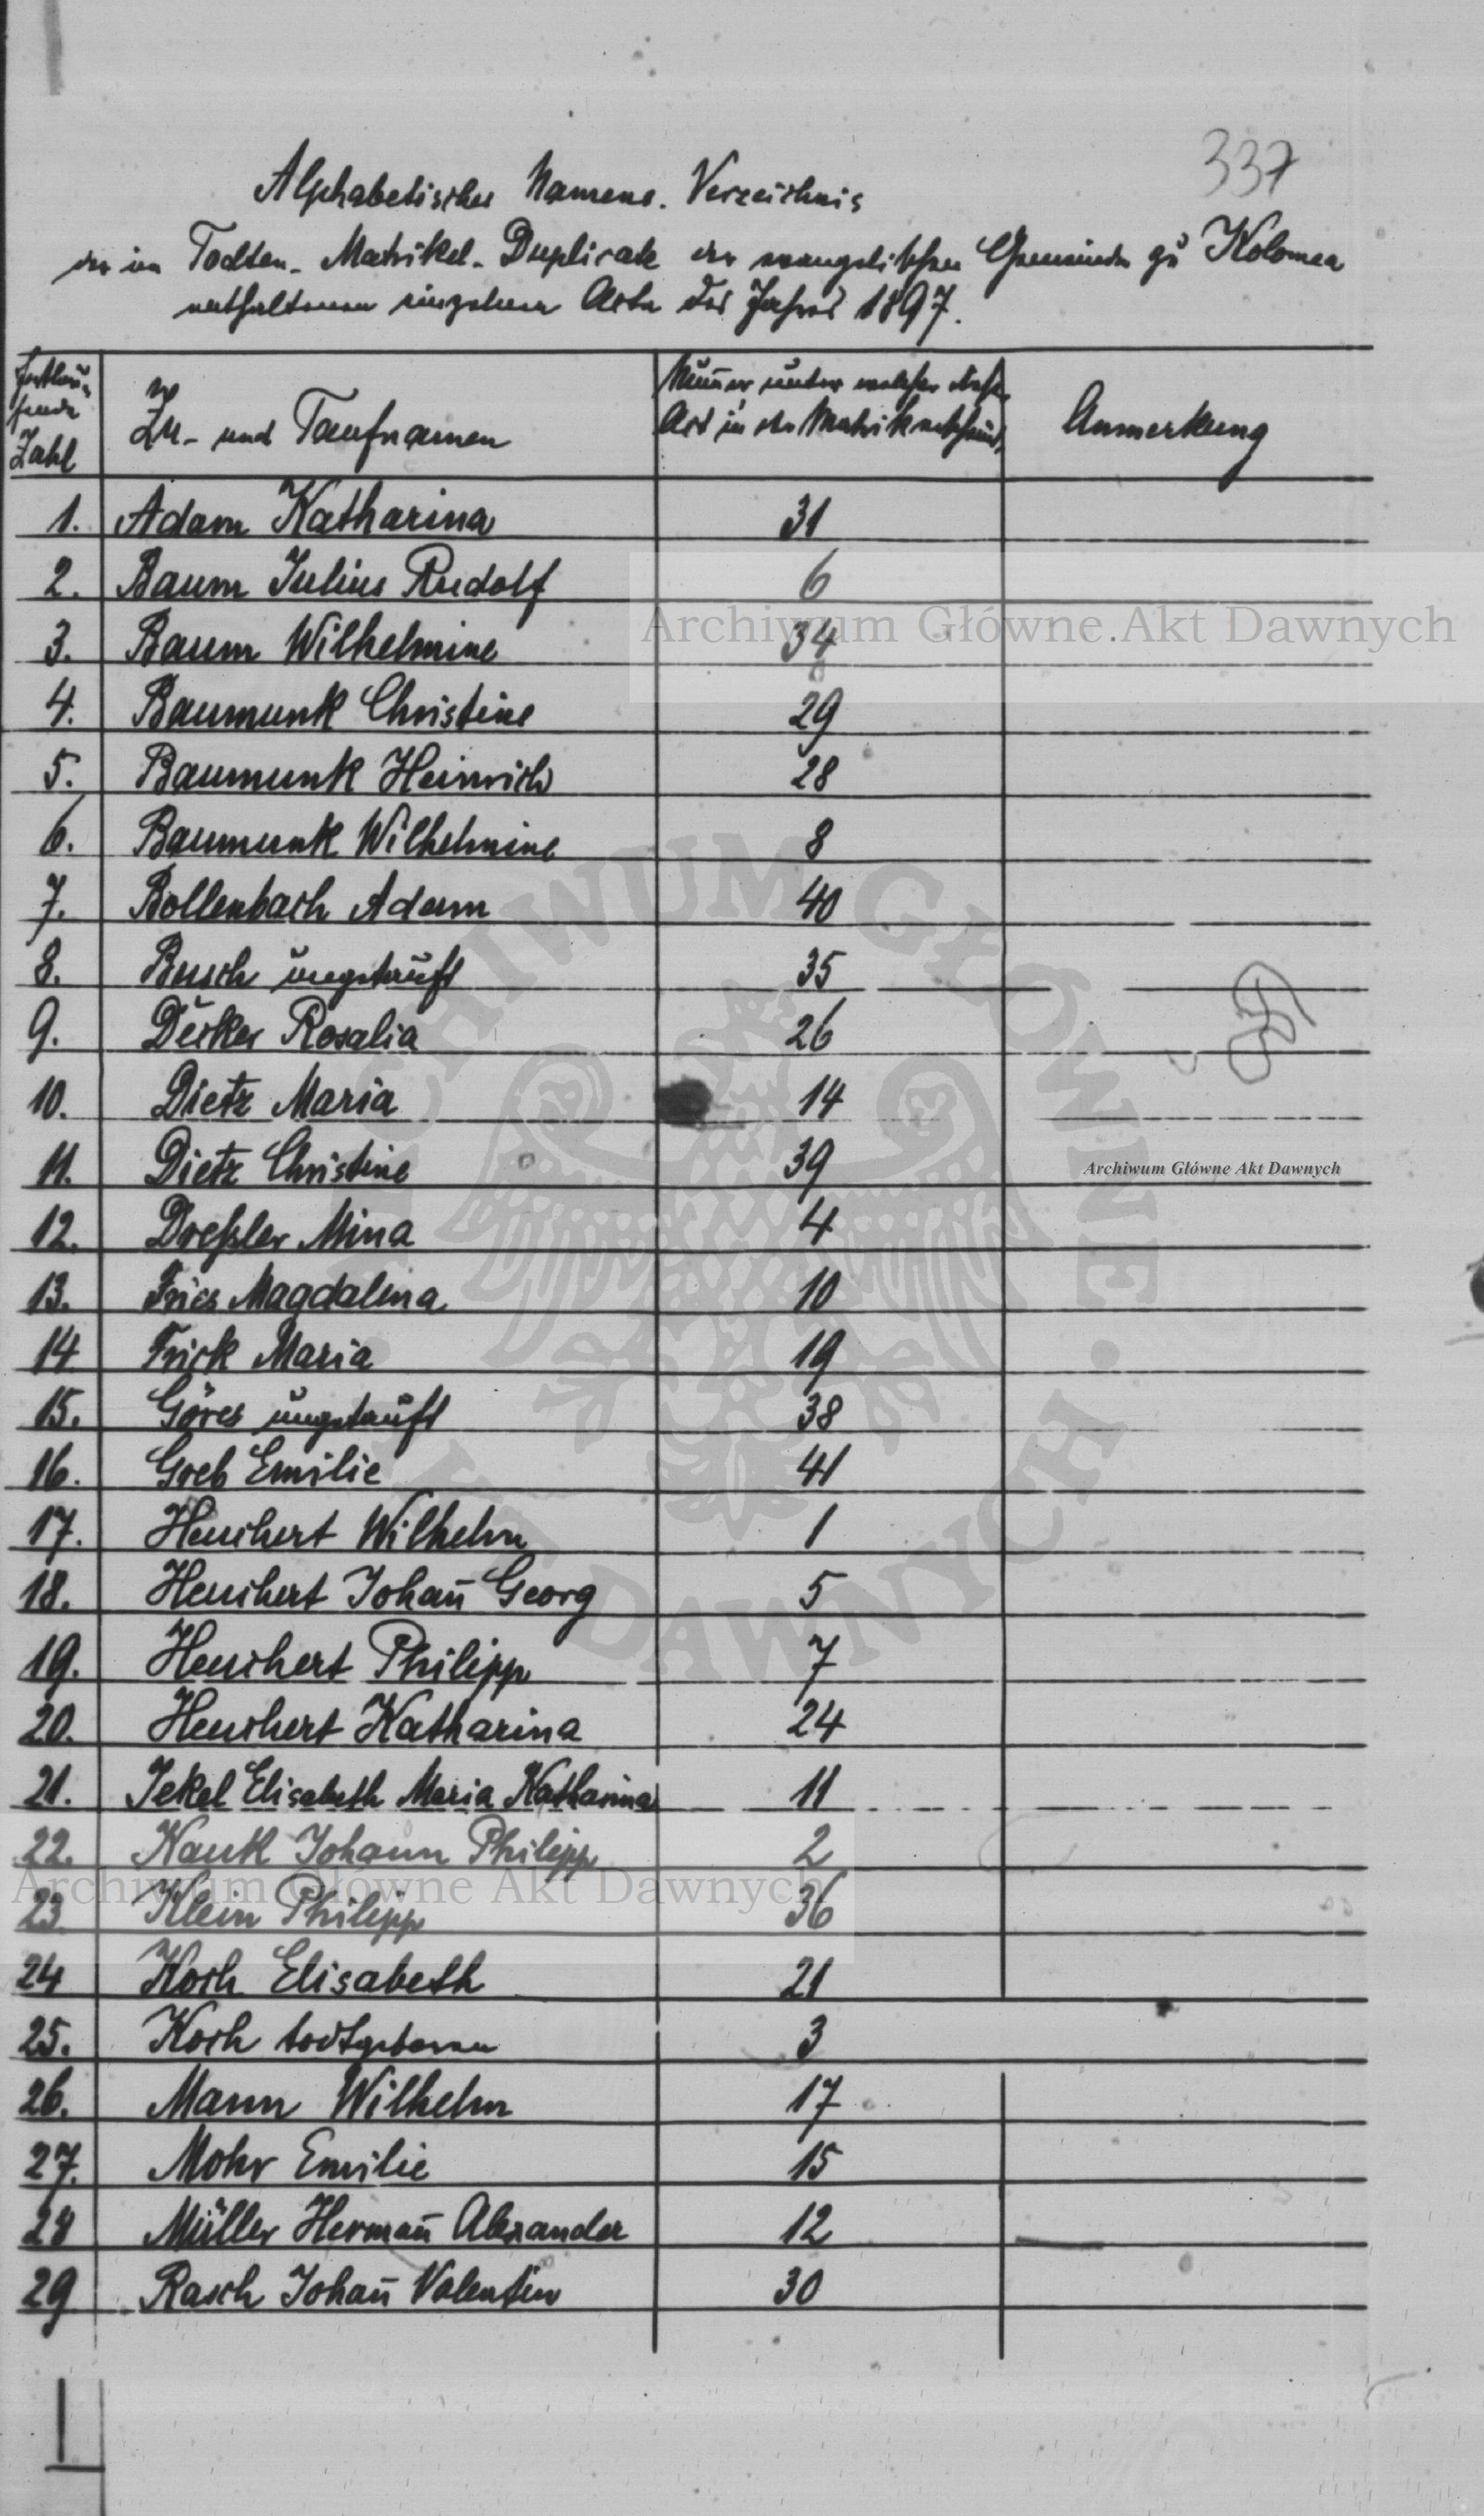 337
Alphabetisches Namens-Verzeichnis
der im Todten-Matrikel-Duplicate der evangelischen Gemeinde zu Kolomea
enthaltenen einzelnen Acte des Jahres 1897.
Fortlaufende Zahl | Zu- und Taufnamen | Num̄er unter welcher dieser Act in der Matrik | Anmerkung
1. Adam Katharina 31
2. Baum Julius Rudolf 6
3. Baum Wilhelmine 34
4. Baumunk Christine 29
5. Baumunk Heinrich 28
6. Baumunk Wilhelmine 8
7. Bollenbach Adam 40
8. Busch ungetauft 35
9. Decker Rosalia 26
10. Dietz Maria 14
11. Dietz Christine 39
12. Dreßler Mina 4
13. Fries Magdalena 10
14 Frick Maria 19
15. Göres ungetauft 38
16. Greb Emilie 41
17. Heuchert Wilhelm 1
18. Heuchert Johan̄ Georg 5
19. Heuchert Philipp 7
20. Heuchert Katharina 24
21. Jekel Elisabeth Maria Katharina 11
22. Kautk Johann Philipp 2
23 Klein Philipp 36
24 Koch Elisabeth 21
25. Koch todtgeboren 3
26. Mann Wilhelm 17
27. Mohr Emilie 15
28 Müller Herman̄ Alexander 12
29 Rasch Johan̄ Valentin 30
Archiwum Główne Akt Dawnych
Archiwum Główne Akt Dawnych
Archiwum Główne Akt Dawnych
ARCHIWUM GŁÓWNE AKT DAWNYCH